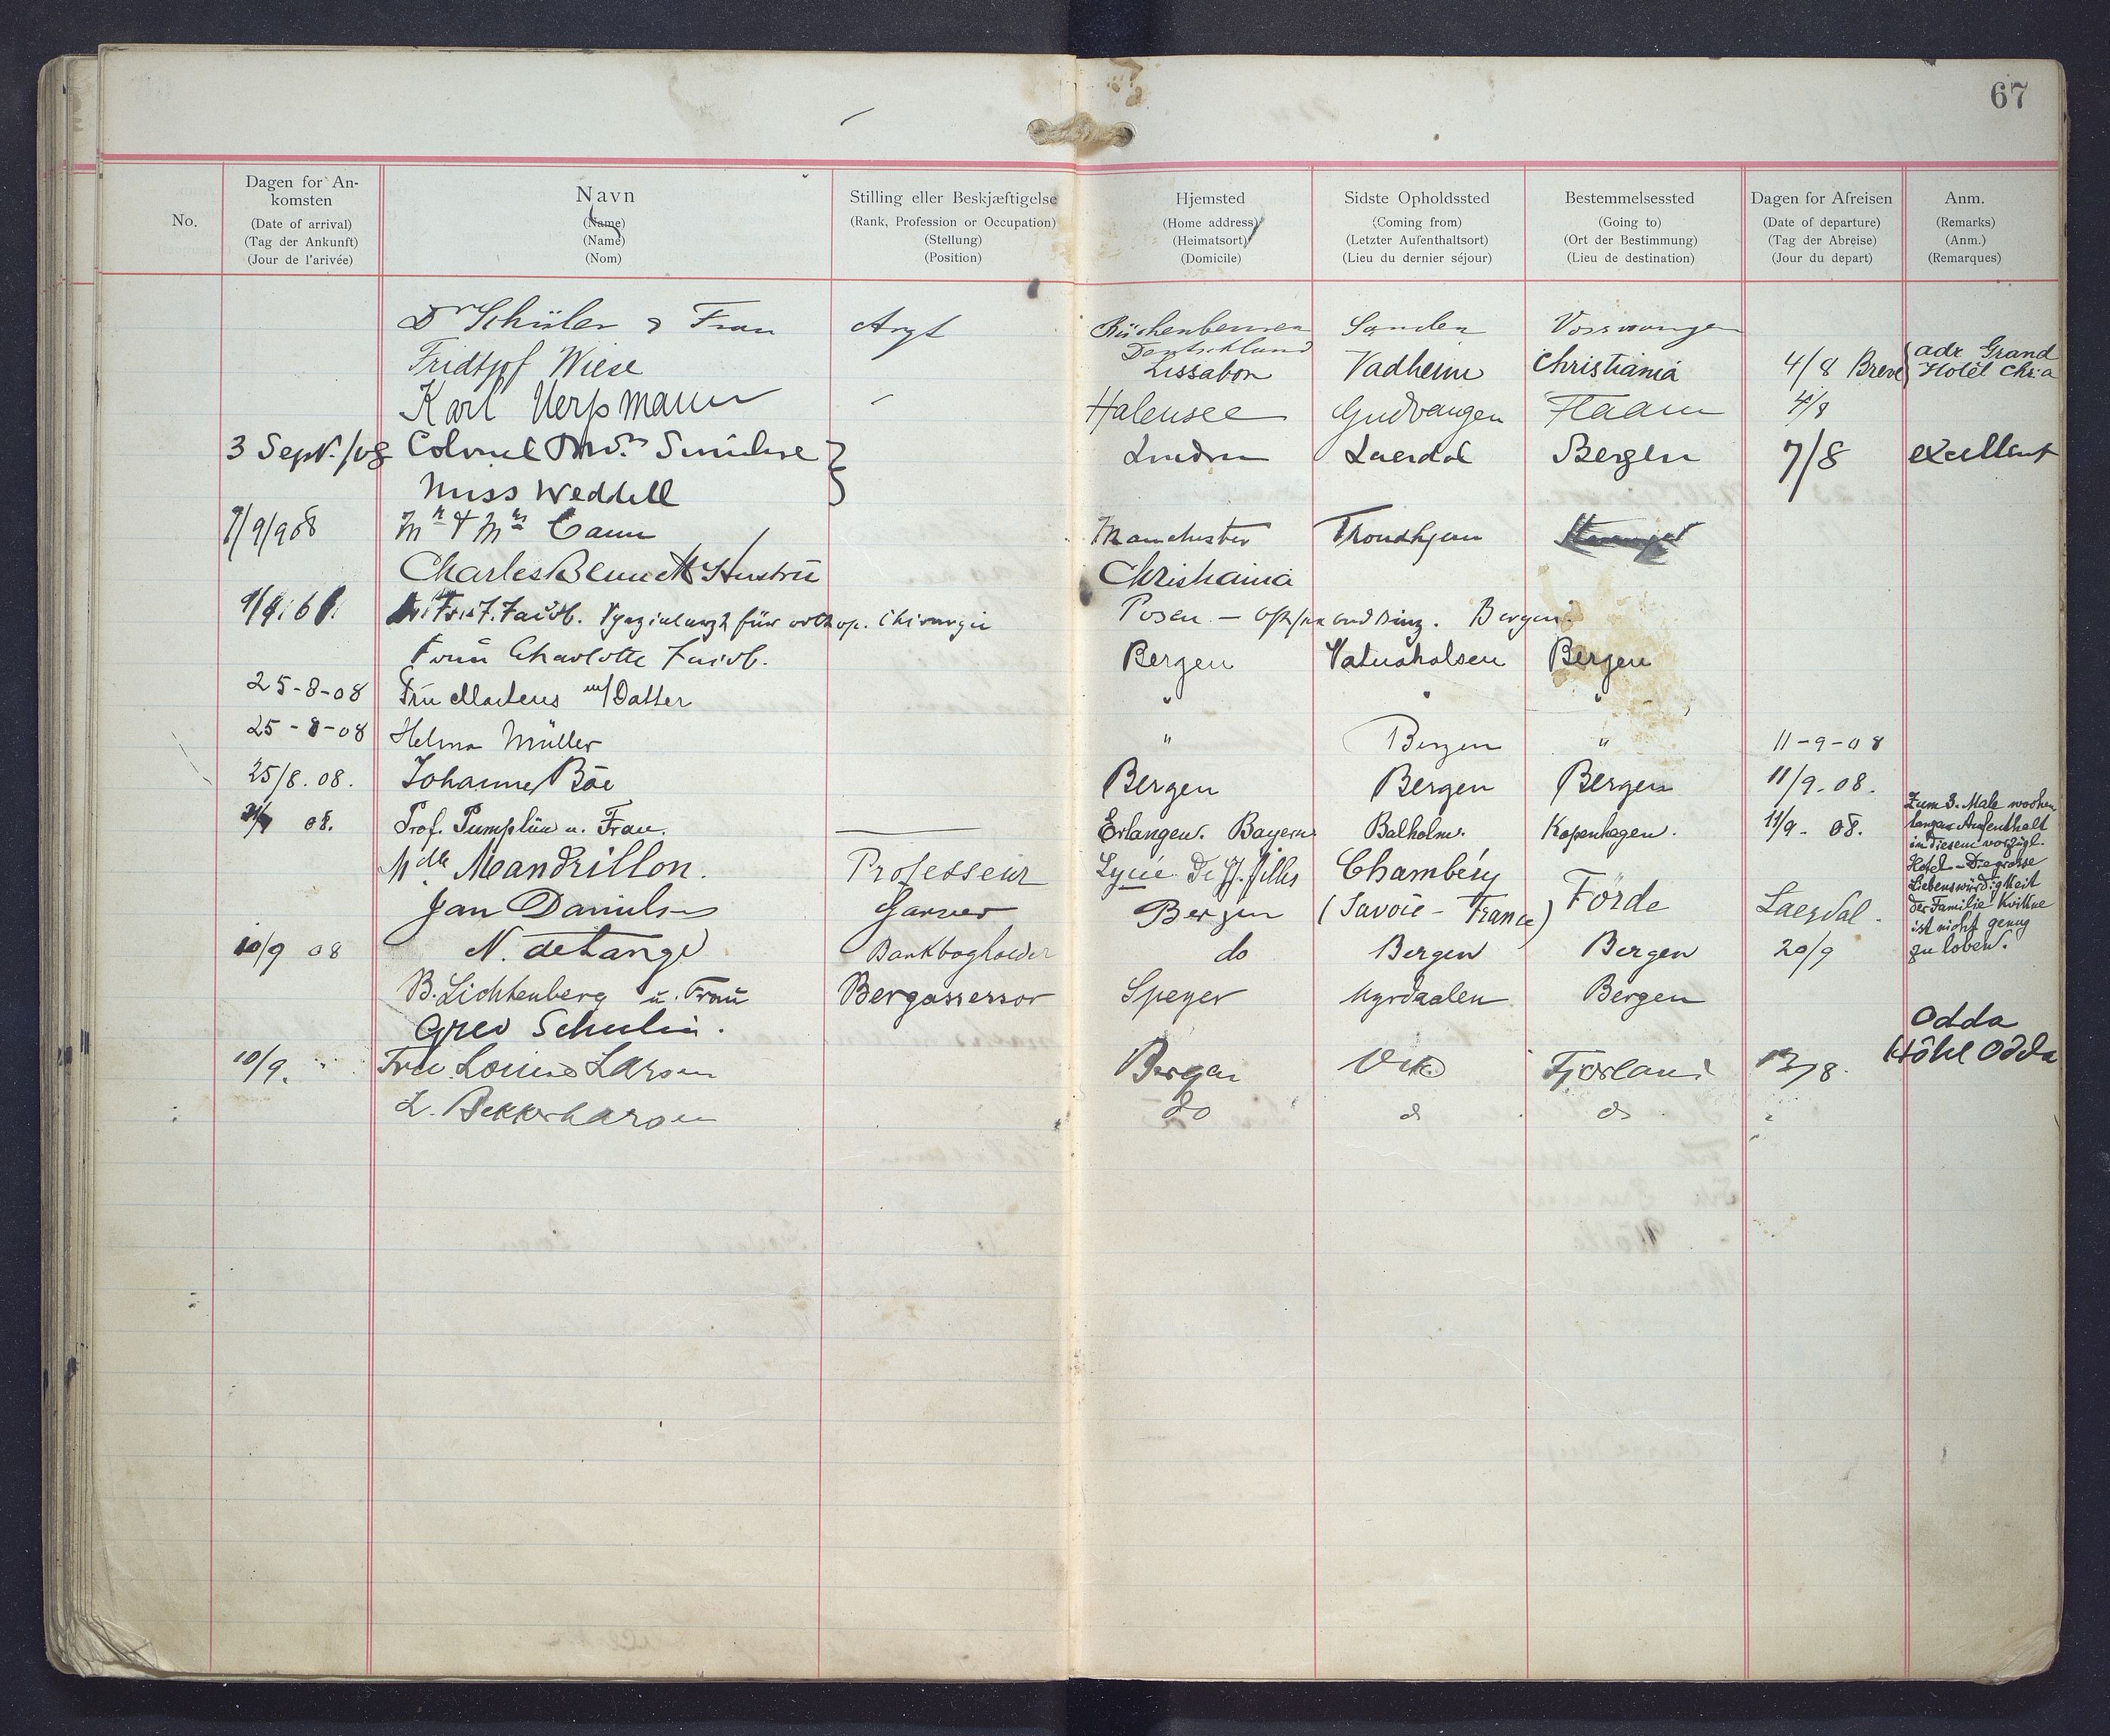 67
No.
Dagen for An-
komsten
(Date of arrival)
(Tag der Ankunft)
(Jour de l'arivée)
Navn
(Name)
(Name)
(Nom)
Stilling eller Beskjæftigelse
(Rank, Profession or Occupation)
(Stellung)
(Position)
Hjemsted
(Home address)
(Heimatsort)
(Domicile)
Sidste Opholdssted
(Coming from)
(Letzter Aufenthaltsort)
(Lieu du dernier séjour)
Bestemmelsessted
(Going to)
(Ort der Bestimmung)
(Lieu de destination)
Dagen for Afreisen
(Date of departure)
(Tag der Abreise)
(Jour du depart)
Anm.
(Remarks)
(Anm.)
(Remarques)
Dr Schüler & Frau Arzt Vossvangen
Deutschland
Fridtjof Wiese Lissabon Vadheim Christiania 4/8 adr Grand
Hotel Chr.a
Karl Halensee Gudvangen Flaam 4/8
3 Sept./08 Colonel London Laerdal Bergen 7/8 excellent
Miss Weddell
7/9/908 Mr & Mrs Cann Manchester Trondhjem
Charles Bennett & Hustru Christiania
Spezialarzt für orthop. Chirurgie Posen Bergen
Frau Charlotte Bergen Bergen
25-8-08 Fru Martens m/Datter " " "
25-8-08 Helma Müller " Bergen " 11-9-08
25/8.08. Johanne Böe Bergen Bergen Bergen 11/9.08.
08. Prof. Pumplün u. Frau. Erlangen. Bayern Balholm. Kopenhagen. 11/9. 08.
Zum 3. Male wochen
langen Aufenthalt
in diesem vorzügl.
Hotel - Die grosse
Liebenswürdigkeit
der Familie Kvikne
ist nicht genug
zu loben.
Mdlle Mandrillon. Professeur Lycée de J. filles Chambéry
(Savoie - France)
Jan Danielsen Bergen Förde Laerdal.
10/9 08 N. de Lange Bankbogholder do Bergen Bergen 20/9
B. Lichtenberg u. Frau Bergassessor Speyer Myrdaalen Bergen
Grev Schulin. Odda
Hôtel Odda
10/9. Fru Louise Larsen Bergen Vik Fjærland 13/8.
L. Bekker Larsen do do do "